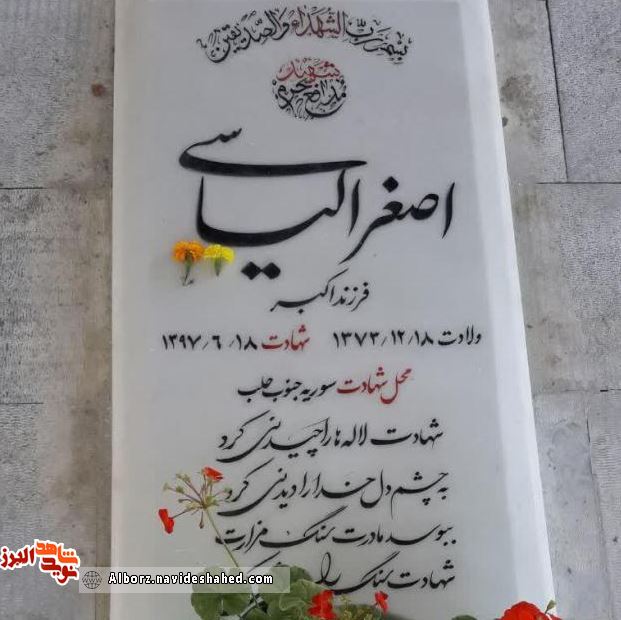 بسم رب الشهداء والصدیقین
شهید
مدافع حرم
اصغر الیاسی
فرزند اکبر
ولادت ۱۳۷۳/۱۲/۱۸ شهادت ۱۳۹۷/۶/۱۸
محل شهادت سوریه جنوب حلب
شهادت لاله ها را چیدنی کرد
به چشم دل خدا را دیدنی کرد
ببوسد مادرت سنگ مزارت
شهادت سنگ را
شاهد
نوید البرز
Alborz.navideshahed.com